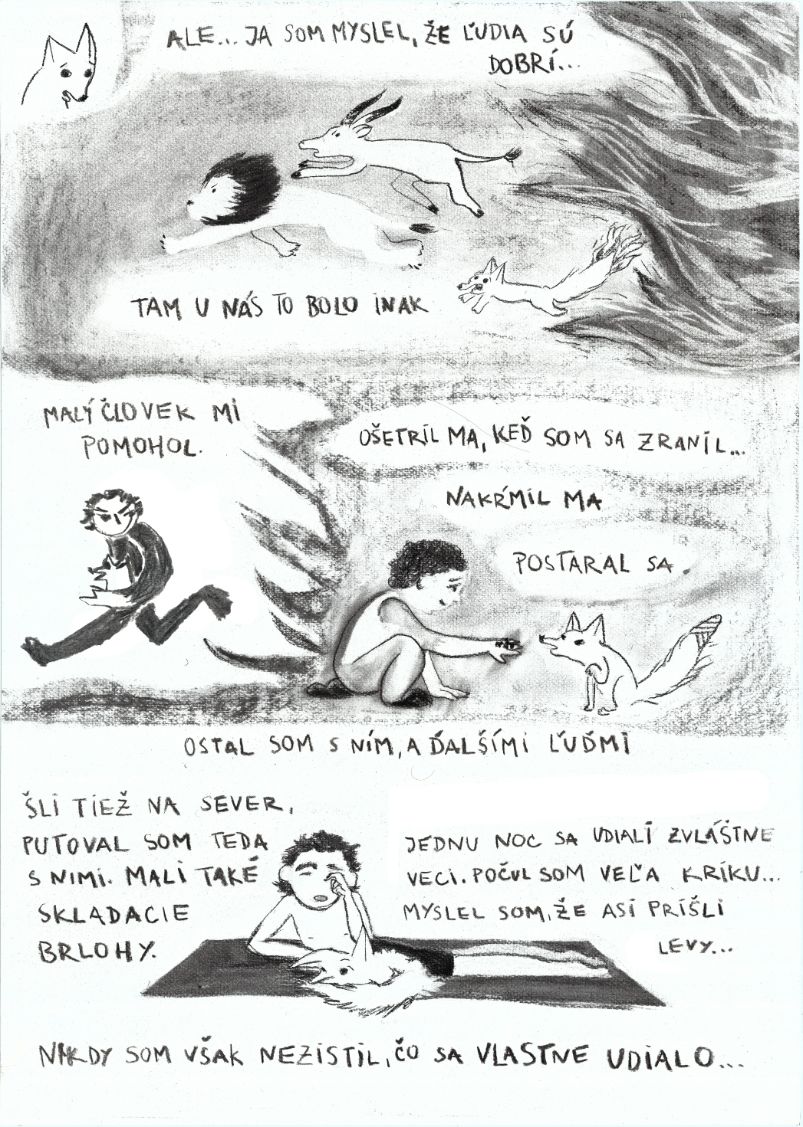 ALE... JA SOM MYSLEL, ŽE ĽUDIA SÚ
DOBRÍ...
TAM U NÁS TO BOLO INAK
MALÝ ČLOVEK MI
POMOHOL.
OŠETRIL MA, KEĎ SOM SA ZRANIL...
NAKŔMIL MA
POSTARAL SA.
OSTAL SOM S NÍM, A ĎALŠÍMI ĽUĎMI
ŠLI TIEŽ NA SEVER,
PUTOVAL SOM TEDA
S NIMI. MALI TAKÉ
SKLADACIE
BRLOHY.
JEDNU NOC SA UDIALI ZVLÁŠTNE
VECI. POČUL SOM VEĽA KRIKU...
MYSLEL SOM, ŽE ASI PRIŠLI
LEVY...
NIKDY SOM VŠAK NEZISTIL, ČO SA VLASTNE UDIALO...